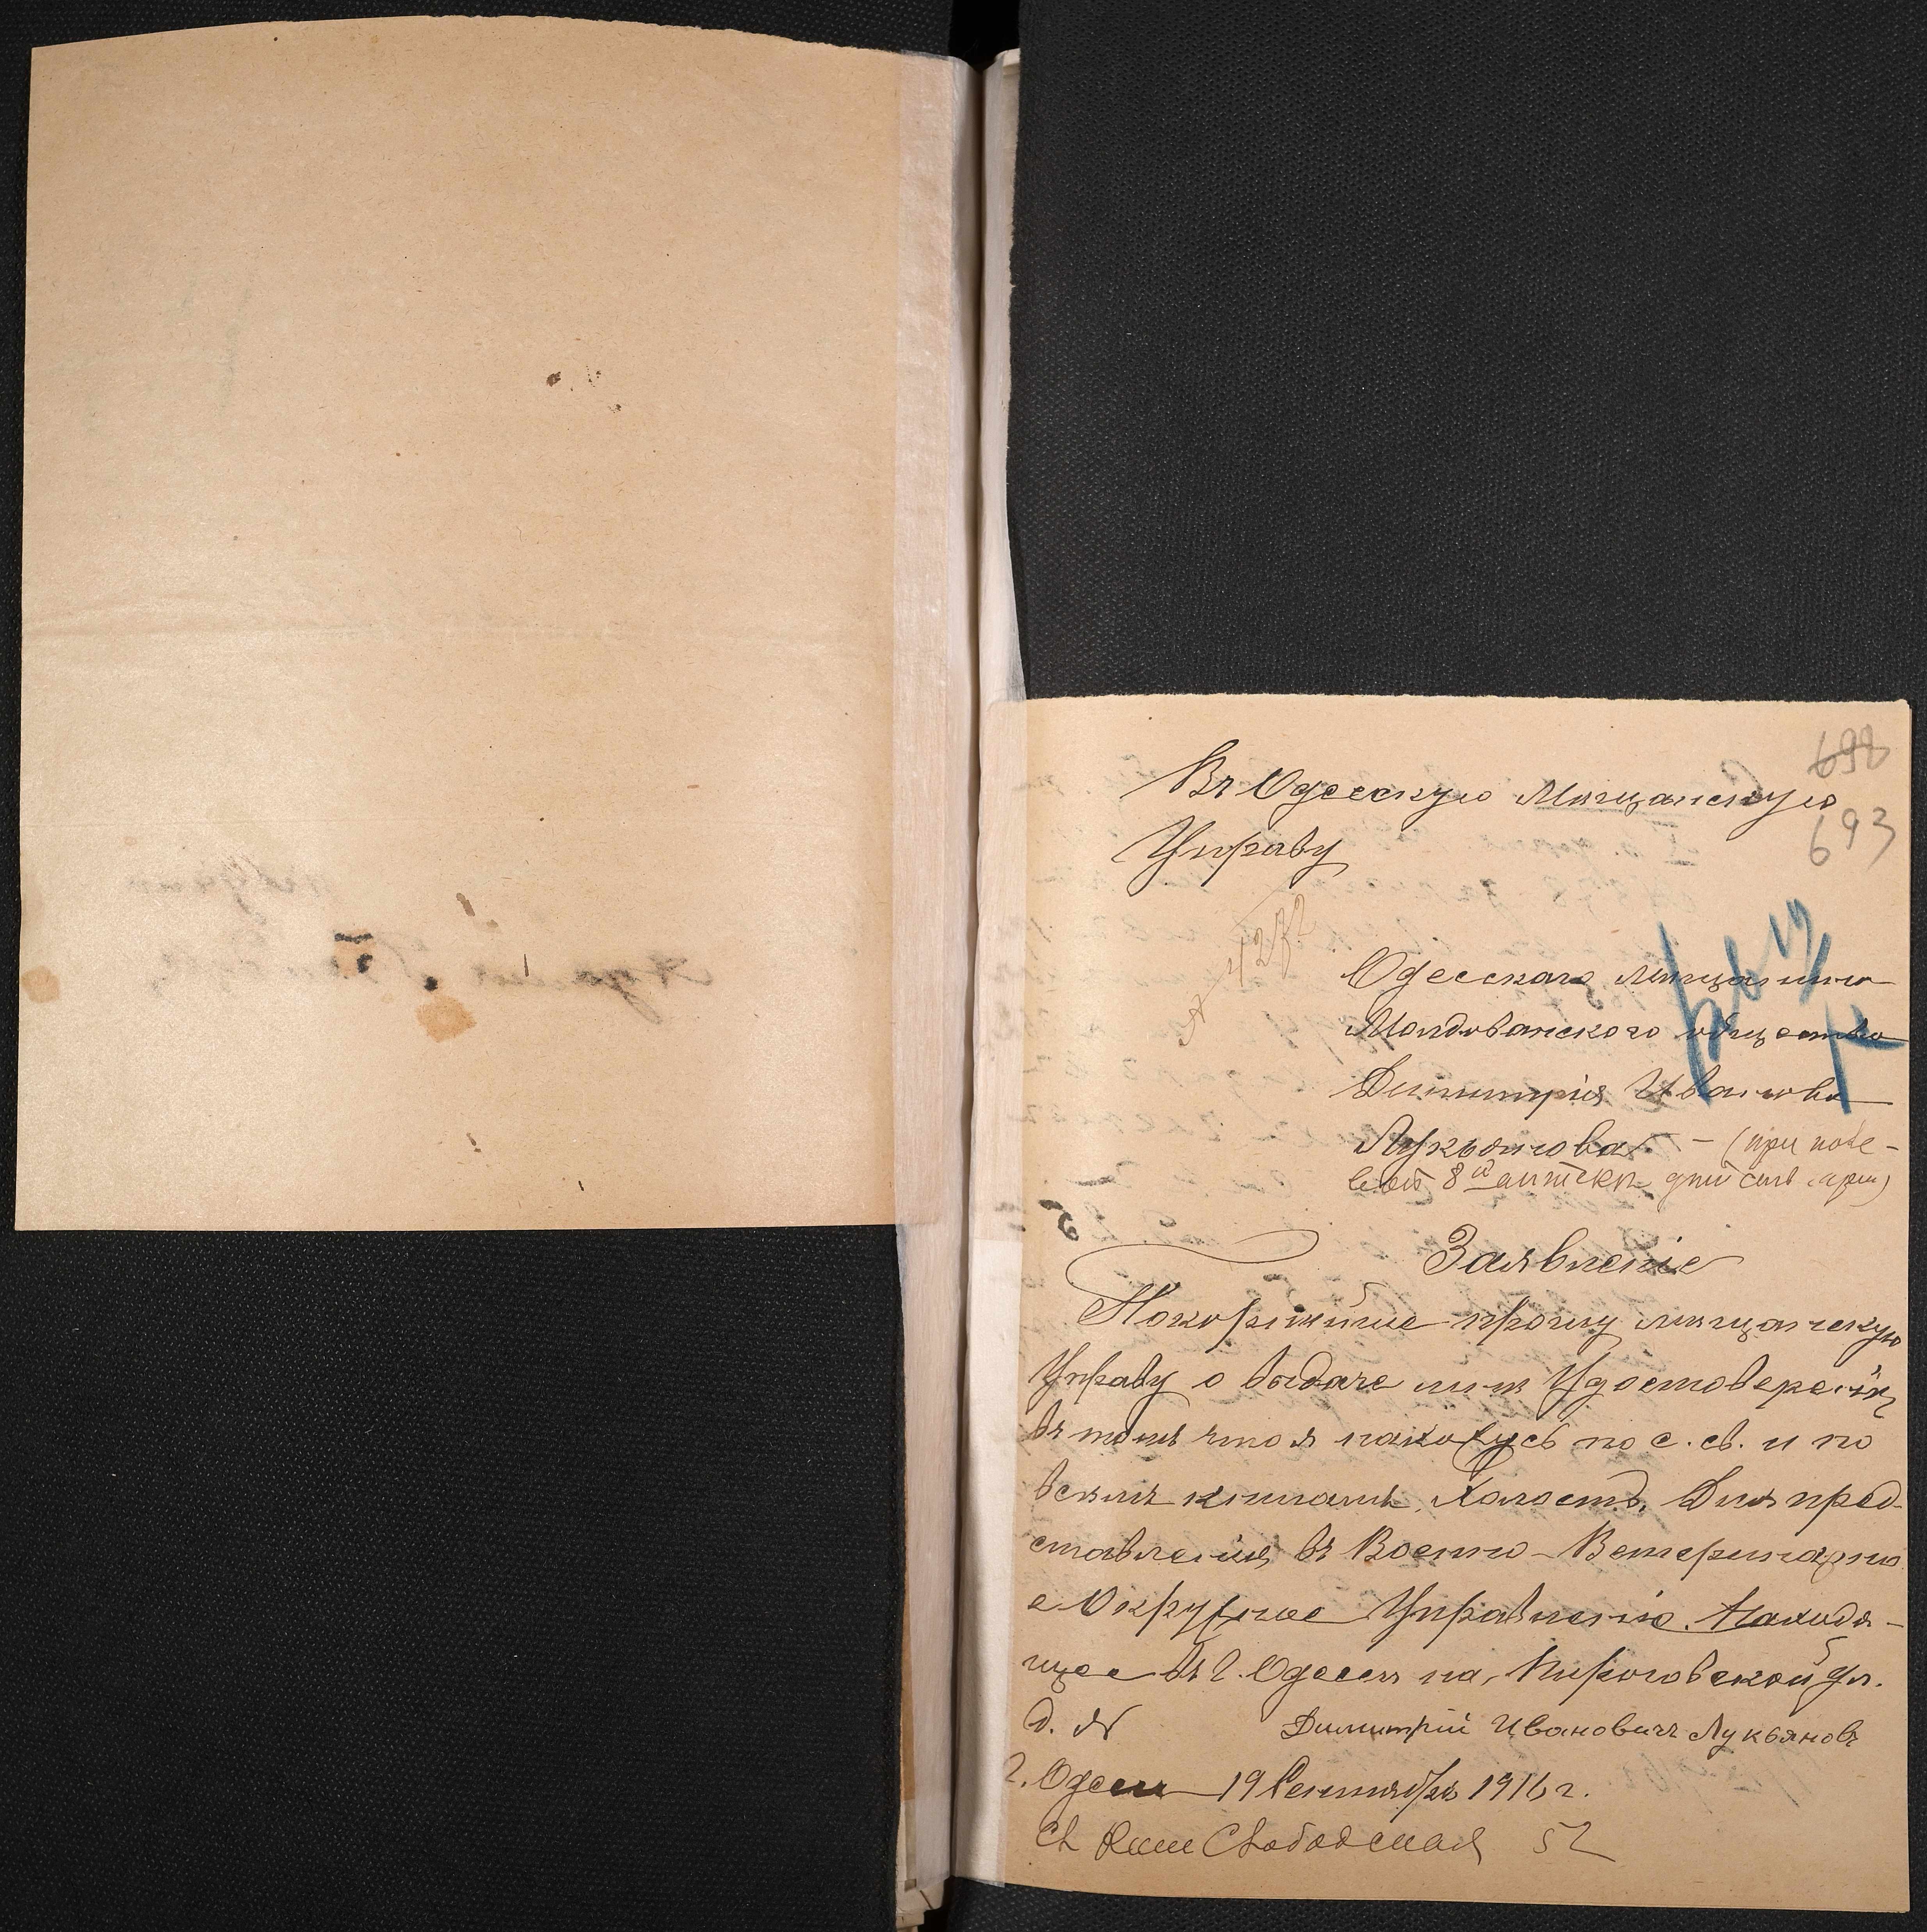 698
693
Въ Одесскую Мѣщанскую
Управу
Одесскаго мѣщанина
Молдованскаго общества
Димитрія Иванова
Лукьянова. — (при
Заявленіе
Покорнѣйше прошу мѣщанскую
Управу о выдаче мнѣ Удостоверенія
въ томъ что я нахожусь по с. св. и по
всѣмъ книгамъ, Холостъ, Для пред-
ставленія въ Военно-Ветеринарно
е Окружное Управленіе. Находя-
щее въ г. Одессѣ на, Пироговской ул.
д. №
Димитрій Ивановичъ Лукьяновъ
г. Одесса 19 Сентября 1916 г.
52